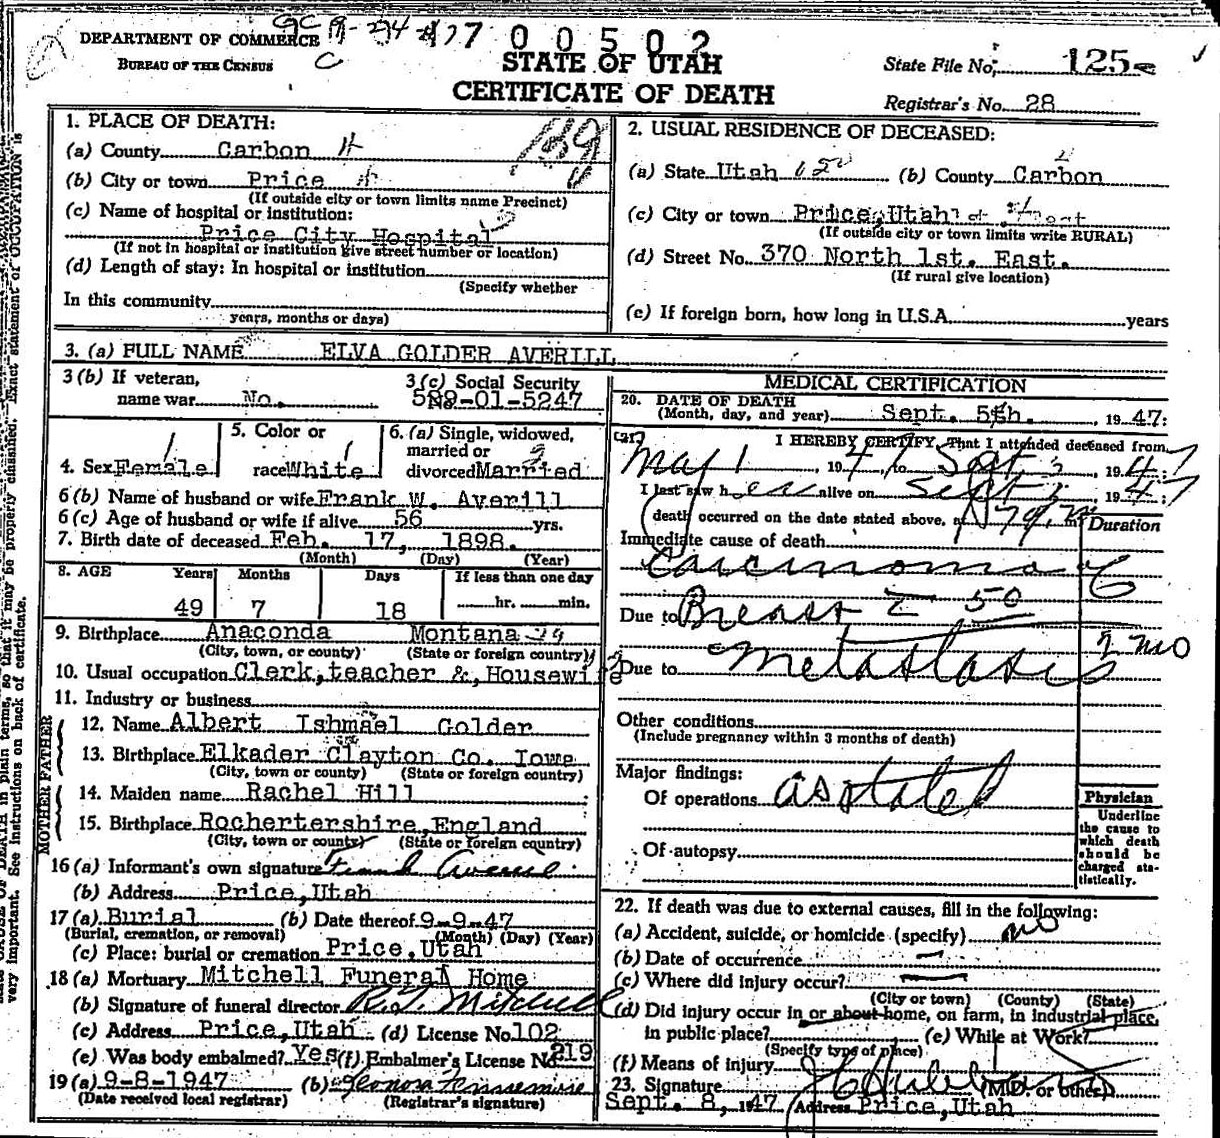 DEPARTMENT OF COMMERCE
BUREAU OF THE CENSUS
7 0 0 5 0 2
STATE OF UTAH
CERTIFICATE OF DEATH
State File No. 125
Registrar's No. 28
1. PLACE OF DEATH:
(a) County Carbon
(b) City or town Price
(If outside city or town limits name Precinct)
(c) Name of hospital or institution:
Price City Hospital
(If not in hospital or institution give street number or location)
(d) Length of stay: In hospital or institution
(Specify whether
In this community
years, months or days)
2. USUAL RESIDENCE OF DECEASED:
(a) State Utah (b) County Carbon
(c) City or town Price,Utah
(If outside city or town limits write RURAL)
(d) Street No. 370 North 1st. East.
(If rural give location)
(e) If foreign born, how long in U.S.A. years
3. (a) FULL NAME ELVA GOLDER AVERILL
3 (b) If veteran,
name war No.
3 (c) Social Security
No. 529-01-5247
4. Sex Female
5. Color or
race White
6. (a) Single, widowed,
married or
divorced Married
6 (b) Name of husband or wife Frank W. Averill
6 (c) Age of husband or wife if alive 56 yrs.
7. Birth date of deceased Feb. 17, 1898.
(Month) (Day) (Year)
8. AGE Years Months Days If less than one day
49 7 18 hr. min.
9. Birthplace Anaconda Montana
(City, town, or county) (State or foreign country)
10. Usual occupation Clerk,teacher &,Housewife
11. Industry or business
FATHER
12. Name Albert Ishmael Golder
13. Birthplace Elkader Clayton Co. Iowa
(City, town or county) (State or foreign country)
MOTHER
14. Maiden name Rachel Hill
15. Birthplace Rochertershire,England
(City, town or county) (State or foreign country)
16 (a) Informant's own signature Frank Averill
(b) Address Price,Utah
17 (a) Burial (b) Date thereof 9-9-47
(Burial, cremation, or removal) (Month) (Day) (Year)
(c) Place: burial or cremation Price,Utah
18 (a) Mortuary Mitchell Funeral Home
(b) Signature of funeral director R.J. Mitchell
(c) Address Price,Utah (d) License No. 102
(e) Was body embalmed? Yes (f) Embalmer's License No. 219
19 (a) 9-8-1947 (b)
(Date received local registrar) (Registrar's signature)
MEDICAL CERTIFICATION
20. DATE OF DEATH
(Month, day, and year) Sept. 5th. , 1947:
21. I HEREBY CERTIFY, That I attended deceased from
May 1 , 1947 to Sept. 5 1947
I last saw her alive on Sept 5 1947
death occurred on the date stated above, at m.
Duration
Immediate cause of death
Carcinoma of
Due to Breast
2 mo
Due to metastasis
Other conditions
(Include pregnancy within 3 months of death)
Major findings:
Of operations as stated
Of autopsy
Physician
Underline
the cause to
which death
should be
charged sta-
tistically.
22. If death was due to external causes, fill in the following:
(a) Accident, suicide, or homicide (specify) no
(b) Date of occurrence
(c) Where did injury occur?
(City or town) (County) (State)
(d) Did injury occur in or about home, on farm, in industrial place,
in public place? (e) While at Work?
(Specify type of place)
(f) Means of injury
23. Signature (M.D. or other)
Sept. 8, 1947 Address Price,Utah